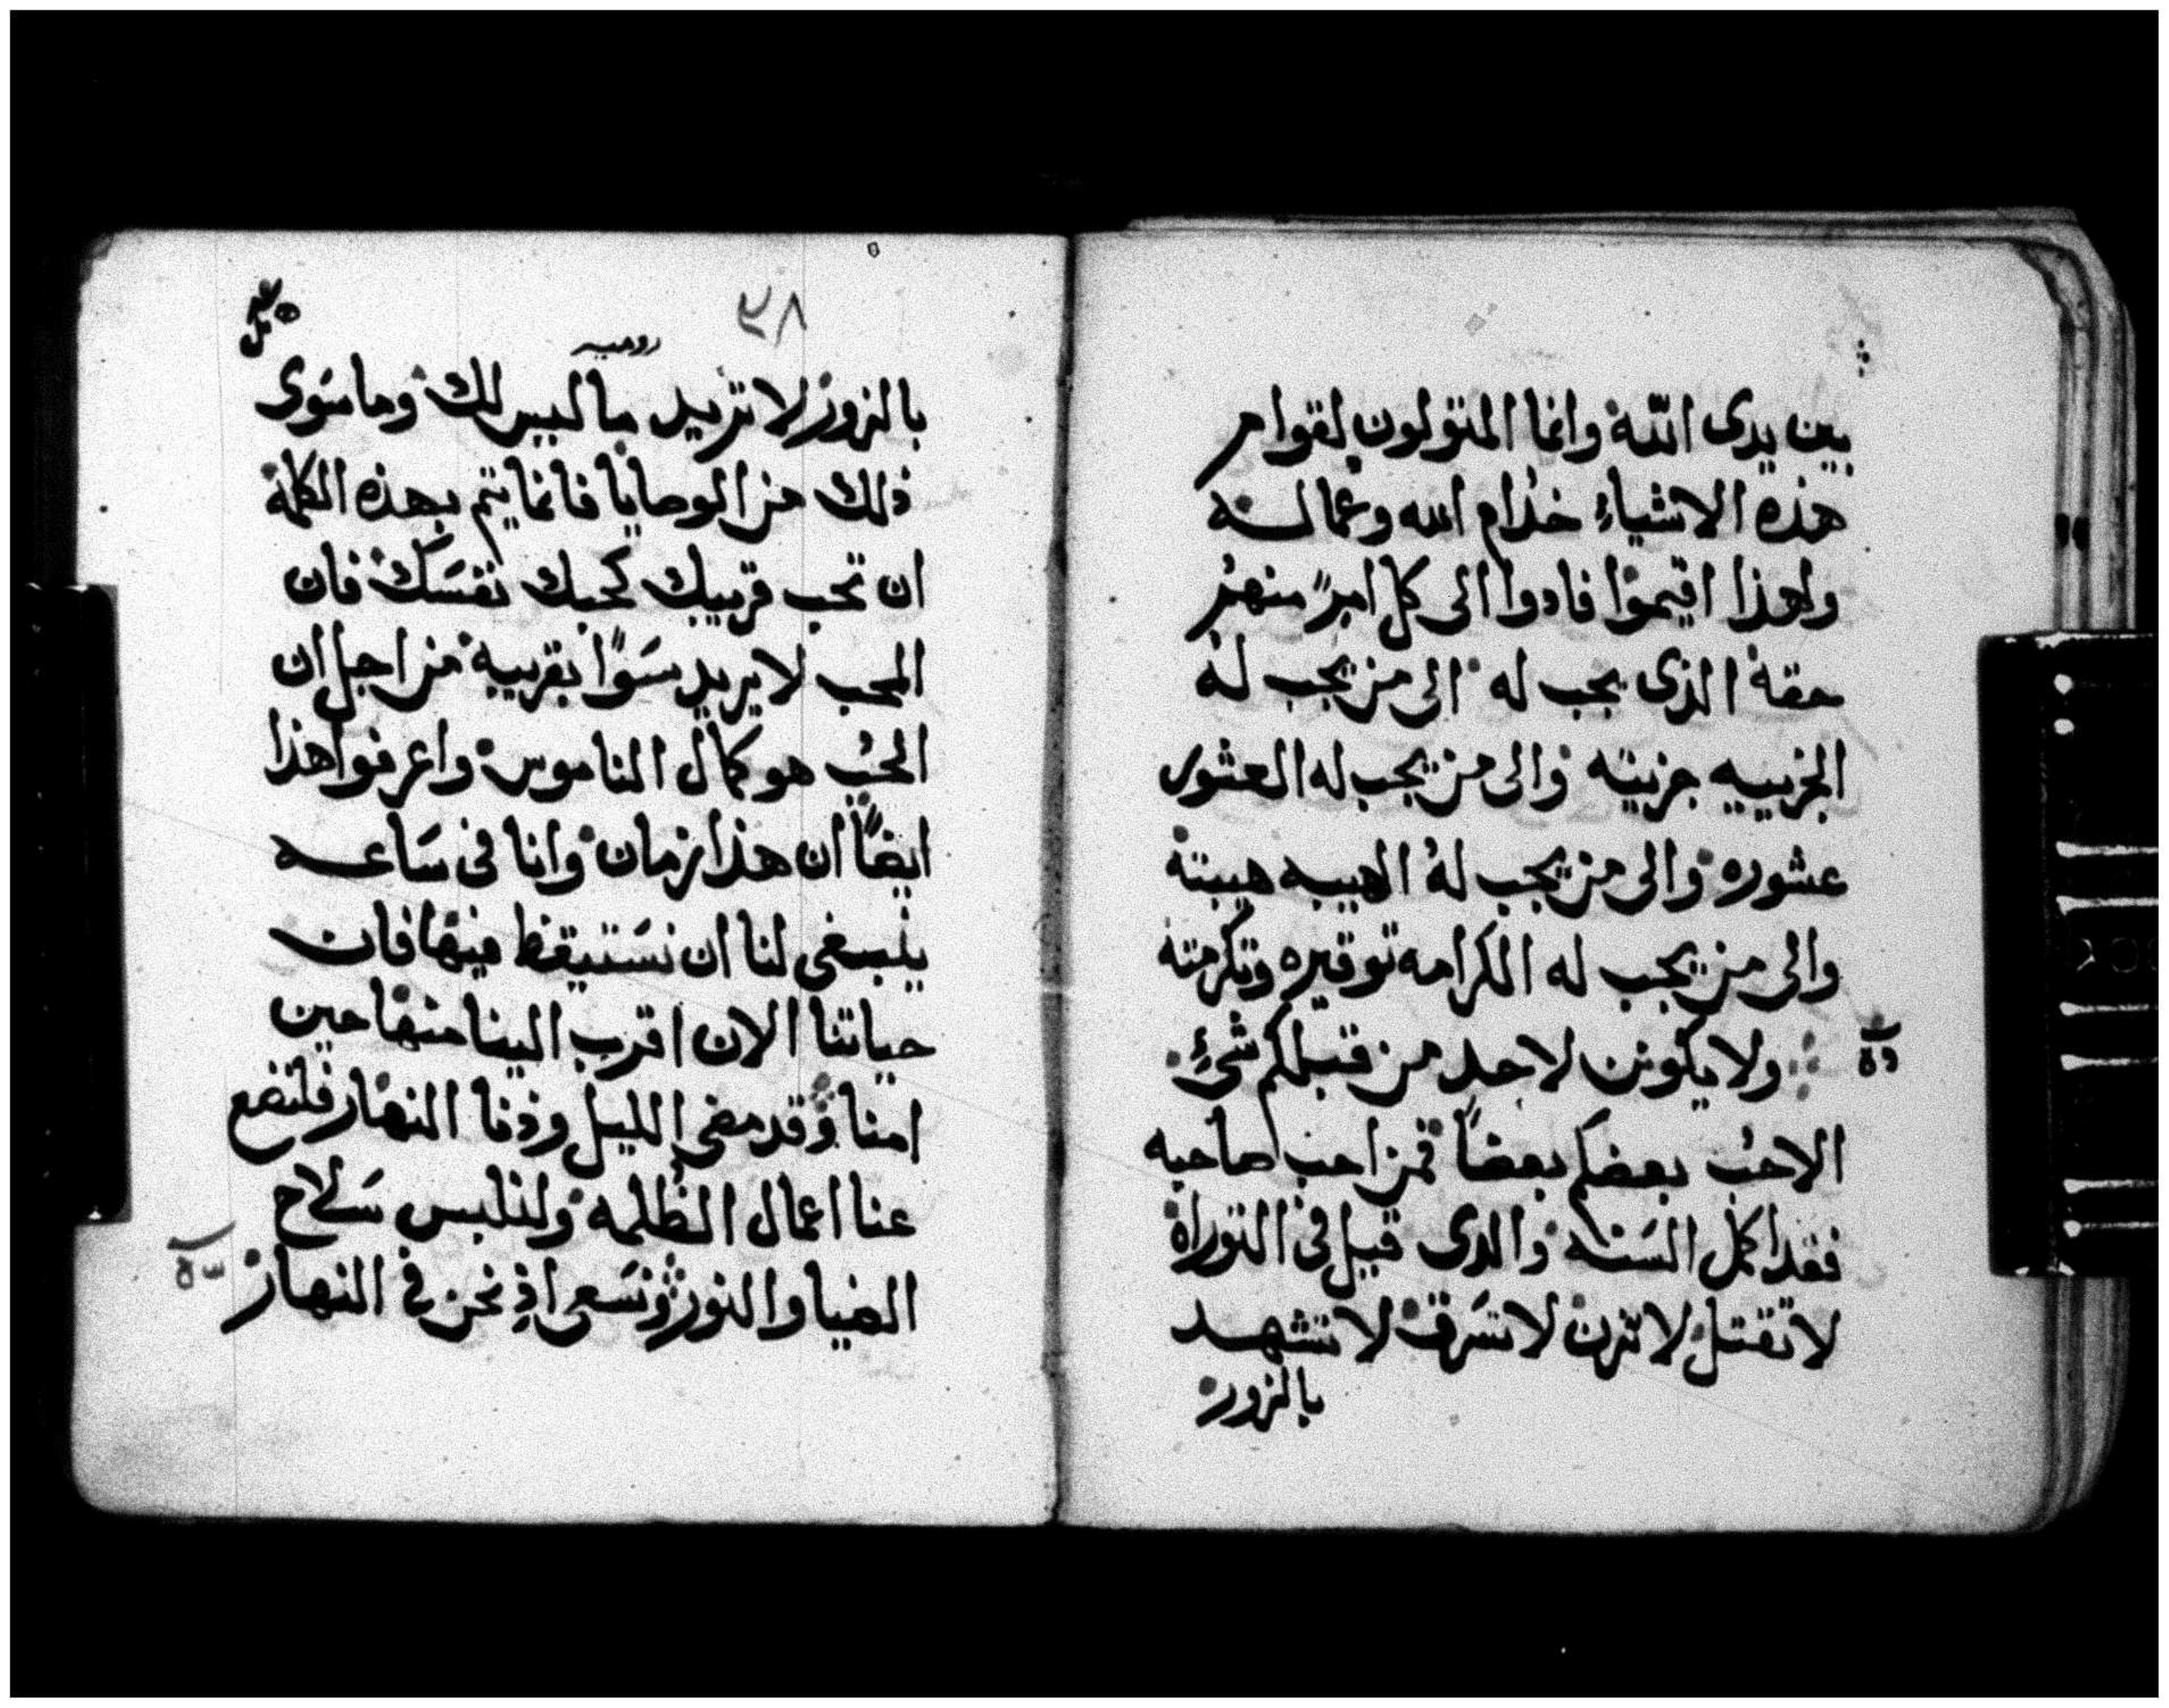 بين يدى الله وانما المتولون لقوام
هذه الاشياء خدام الله وعماله
ولهذا اقيموا فادوا الى كل امرءٍ منهم
حقه الذى يجب له الى من يجب له
الجزييه جزيته والى من يجب له العشور
عشوره والى من يجب له الهيبه هيبته
والى من يجب له الكرامه توقيره وتكرمته
ولا يكونن لاحد من قبلكم شئ
الا حب بعضكم بعضاً فمن احب صاحبه
فقد اكمل السنه والدى قيل فى التوراة
لا تقتل لا تزن لا تسرق لا تشهد
بالزور
٣٨
روميه
بالزور لا تريد ما ليس لك وما سوى
ذلك من الوصايا فانما يتم بهذه الكلمة
ان تحب قريبك كحبك نفسك فان
المحب لا يريد سوًا بقريبه من اجل ان
الحب هو كمال الناموس واعرفوا هذا
ايضاً ان هذا زمان وانا فى ساعه
ينبغى لنا ان نستيقظ فيها فان
حياتنا الان اقرب الينا منها حين
امنا وقد مضى الليل ودنا النهار فلنضع
عنا اعمال الظلمه ولنلبس سلاح
الضيا والنور ونسعى اذ نحن فى النهار